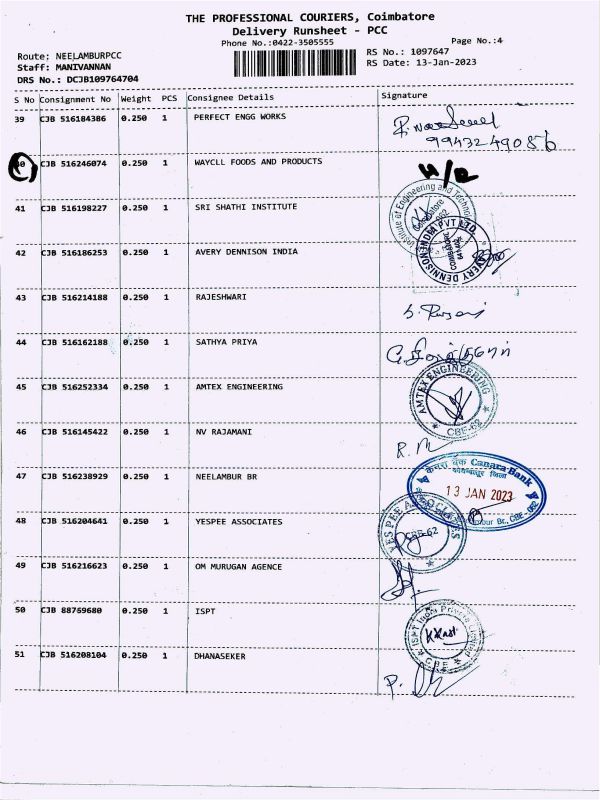 THE PROFESSIONAL COURIERS, Coimbatore
Delivery Runsheet - PCC
Phone No.:0422-3505555
Page No.:4
Route: NEELAMBURPCC
RS No.: 1097647
Staff: MANIVANNAN
RS Date: 13-Jan-2023
DRS No.: DCJB109764704
S No Consignment No Weight PCS Consignee Details Signature
39 CJB 516184386 0.250 1 PERFECT ENGG WORKS
9943249086
40 CJB 516246074 0.250 1 WAYCLL FOODS AND PRODUCTS
Institute of Engineering and Technology
41 CJB 516198227 0.250 1 SRI SHATHI INSTITUTE
AVERY DENNISON INDIA PVT LTD
42 CJB 516186253 0.250 1 AVERY DENNISON INDIA
43 CJB 516214188 0.250 1 RAJESHWARI
44 CJB 516162188 0.250 1 SATHYA PRIYA
45 CJB 516252334 0.250 1 AMTEX ENGINEERING
AMTEX ENGINEERING
CBE-62
46 CJB 516145422 0.250 1 NV RAJAMANI
R. M
47 CJB 516238929 0.250 1 NEELAMBUR BR
केनरा बैंक Canara Bank
13 JAN 2023
48 CJB 516204641 0.250 1 YESPEE ASSOCIATES
CBE-62
49 CJB 516216623 0.250 1 OM MURUGAN AGENCE
50 CJB 88769680 0.250 1 ISPT
ISPT India Private Limited
CBE
51 CJB 516208104 0.250 1 DHANASEKER